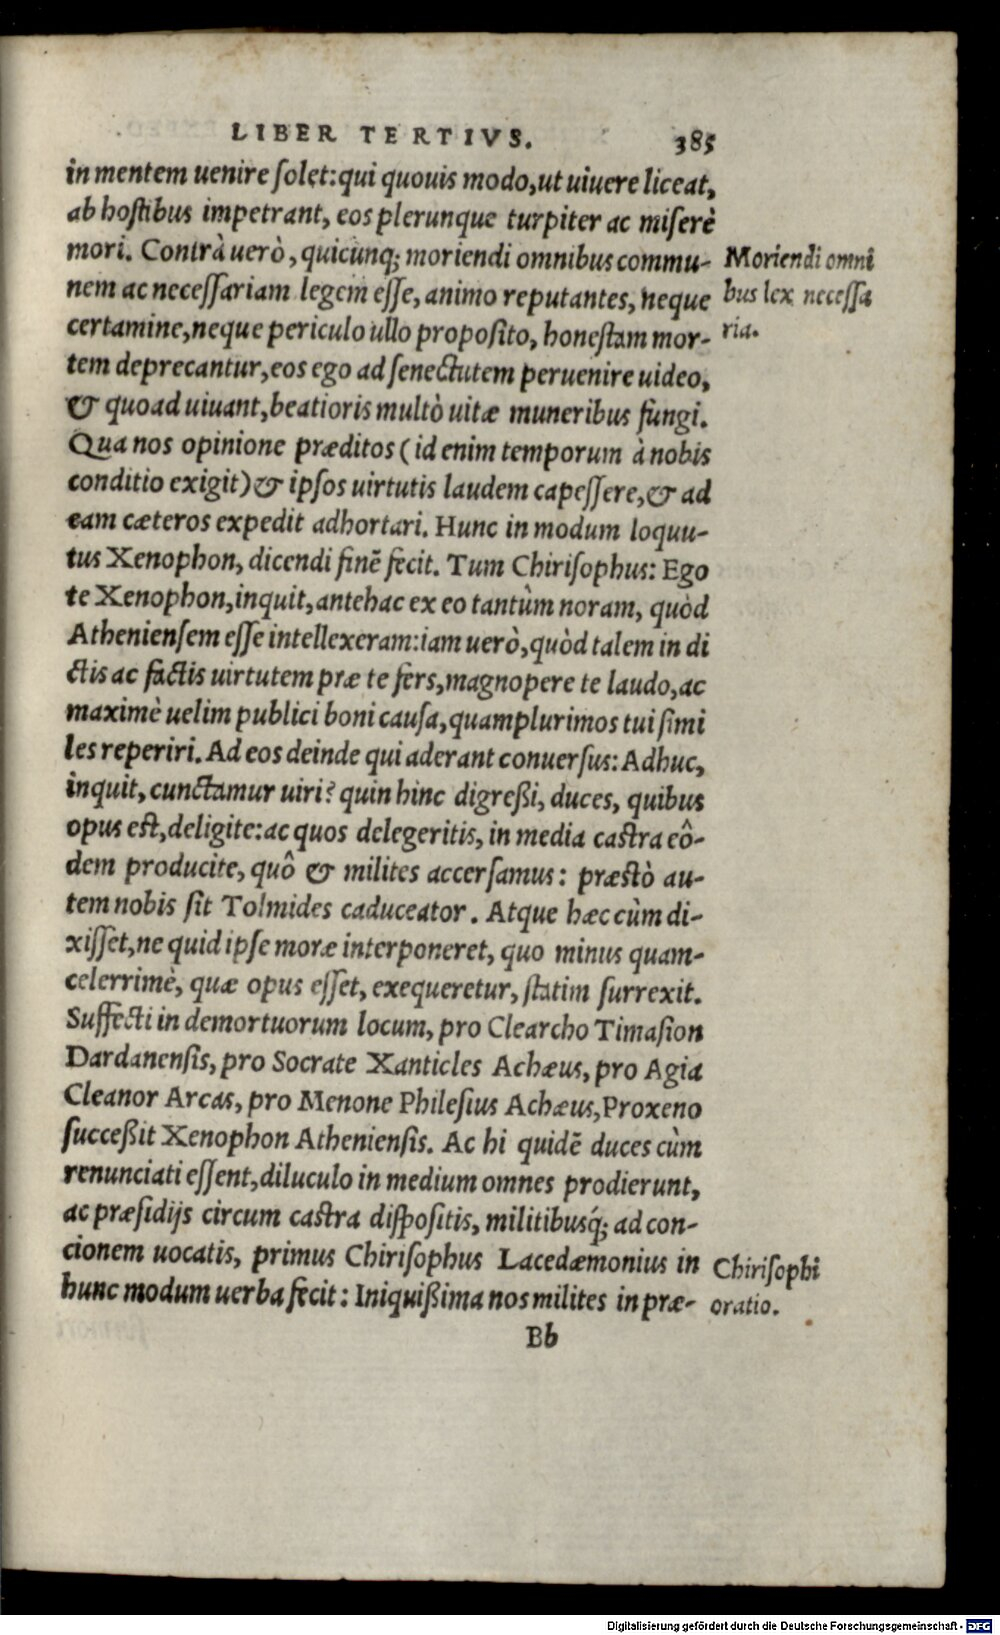 LIBER TERTIVS. 385
in mentem uenire solet: qui quouis modo, ut uiuere liceat,
ab hostibus impetrant, eos plerunque turpiter ac miserè
mori. Contrà uerò, quicunq; moriendi omnibus commu-
nem ac necessariam legem esse, animo reputantes, neque
certamine, neque periculo ullo proposito, honestam mor-
tem deprecantur, eos ego ad senectutem peruenire uideo,
& quoad uiuant, beatioris multò uitæ muneribus fungi.
Qua nos opinione præditos (id enim temporum à nobis
conditio exigit) & ipsos uirtutis laudem capessere, & ad
eam cæteros expedit adhortari. Hunc in modum loquu-
tus Xenophon, dicendi finē fecit. Tum Chirisophus: Ego
te Xenophon, inquit, antehac ex eo tantùm noram, quòd
Atheniensem esse intellexeram: iam uerò, quòd talem in di
ctis ac factis uirtutem præ te fers, magnopere te laudo, ac
maximè uelim publici boni causa, quamplurimos tui simi
les reperiri. Ad eos deinde qui aderant conuersus: Adhuc,
inquit, cunctamur uiri? quin hinc digreßi, duces, quibus
opus est, deligite: ac quos delegeritis, in media castra eô-
dem producite, quô & milites accersamus: præstò au-
tem nobis sit Tolmides caduceator. Atque hæc cùm di-
xisset, ne quid ipse moræ interponeret, quo minus quam-
celerrimè, quæ opus esset, exequeretur, statim surrexit.
Suffecti in demortuorum locum, pro Clearcho Timasion
Dardanensis, pro Socrate Xanticles Achæus, pro Agia
Cleanor Arcas, pro Menone Philesius Achæus, Proxeno
succeßit Xenophon Atheniensis. Ac hi quidē duces cùm
renunciati essent, diluculo in medium omnes prodierunt,
ac præsidijs circum castra dispositis, militibusq́; ad con-
cionem uocatis, primus Chirisophus Lacedæmonius in
hunc modum uerba fecit: Iniquißima nos milites in præ-
Bb
Moriendi omni
bus lex necessa
ria.
Chirisophi
oratio.
Digitalisierung gefördert durch die Deutsche Forschungsgemeinschaft - DFG